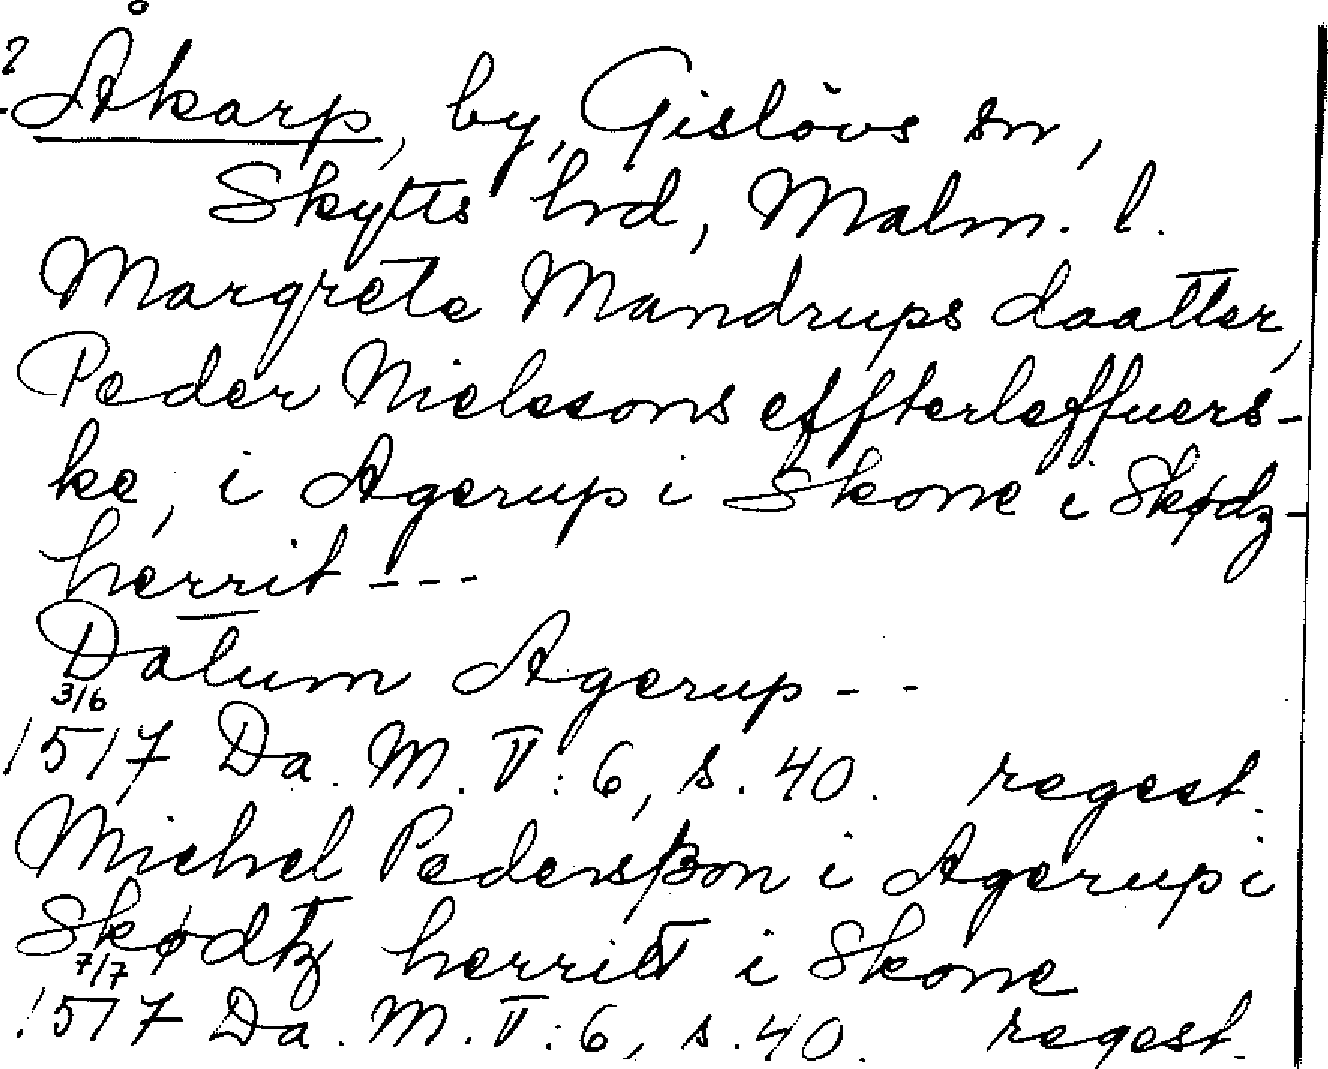 ? Åkarp, by, Gislövs sn,
Skytts hrd, Malm. l.
Margrete Mandrups daatter,
Peder Nielssons effterleffuers-
ke, i Agerup i Skone i Skødz-
herrit ---
Datum Agerup --
3/6
1517 Da. M. V:6, s. 40. regest.
Michel Pedersßon i Agerup i
Skødtz herritt i Skone
7/7
1517 Da. M. V:6, s. 40. regest.